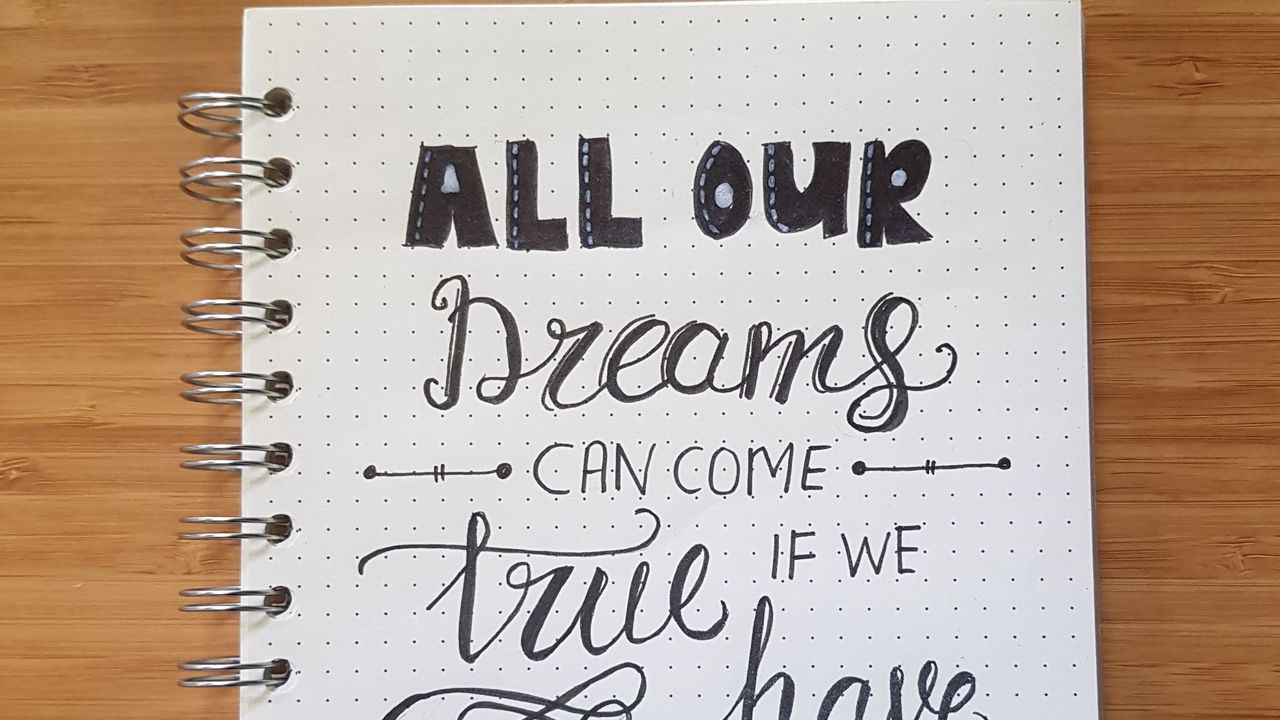 ALL OUR
Dreams
CAN COME
true IF WE
have